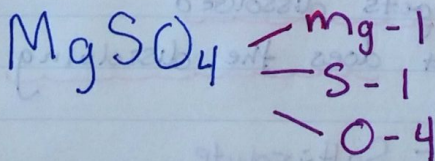 MgSO₄
Mg-1
S-1
O-4